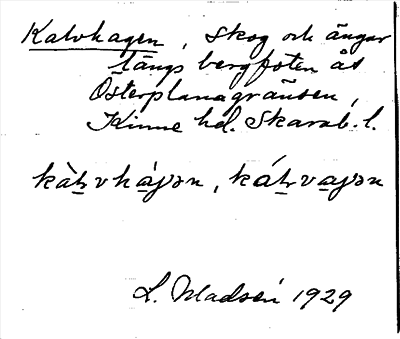 Kalvhagen, skog och ängar
längs bergfoten åt
Österplanagränsen,
Kinne hd. Skarab. l.
kàl̠vhá̠gən, kál̠va̠gən
L. Madsén 1929